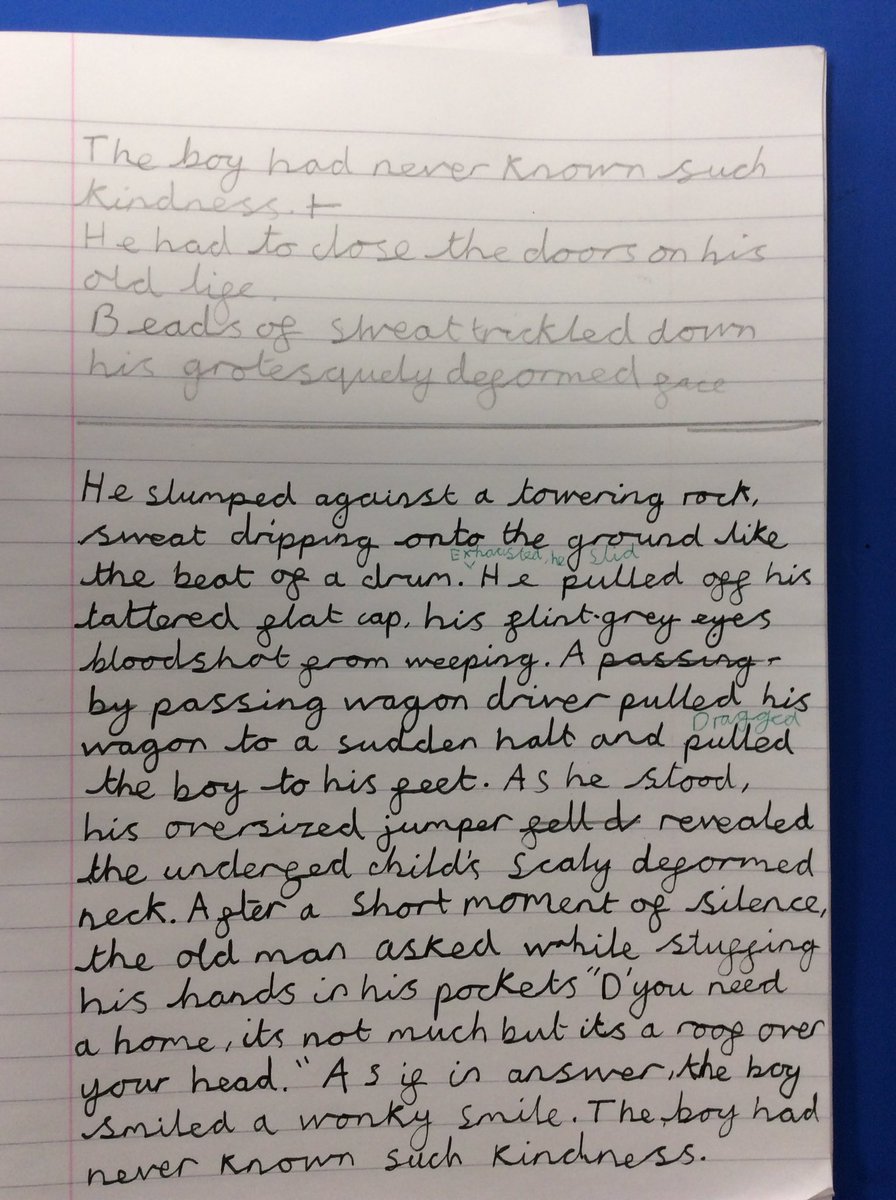 The boy had never known such
kindness. t
He had to close the doors on his
old life.
Beads of sweat trickled down
his grotesquely deformed face
He slumped against a towering rock,
sweat dripping onto the ground like
Exhausted, he slid
the beat of a drum. He pulled off his
tattered flat cap, his flint-grey eyes
bloodshot from weeping. A passing-
by passing wagon driver pulled his
Dragged
wagon to a sudden halt and pulled
the boy to his feet. As he stood,
his oversized jumper fell d revealed
the underfed child's scaly deformed
neck. After a short moment of silence,
the old man asked while stuffing
his hands in his pockets "D'you need
a home, its not much but its a roof over
your head." As if in answer, the boy
smiled a wonky smile. The boy had
never known such kindness.